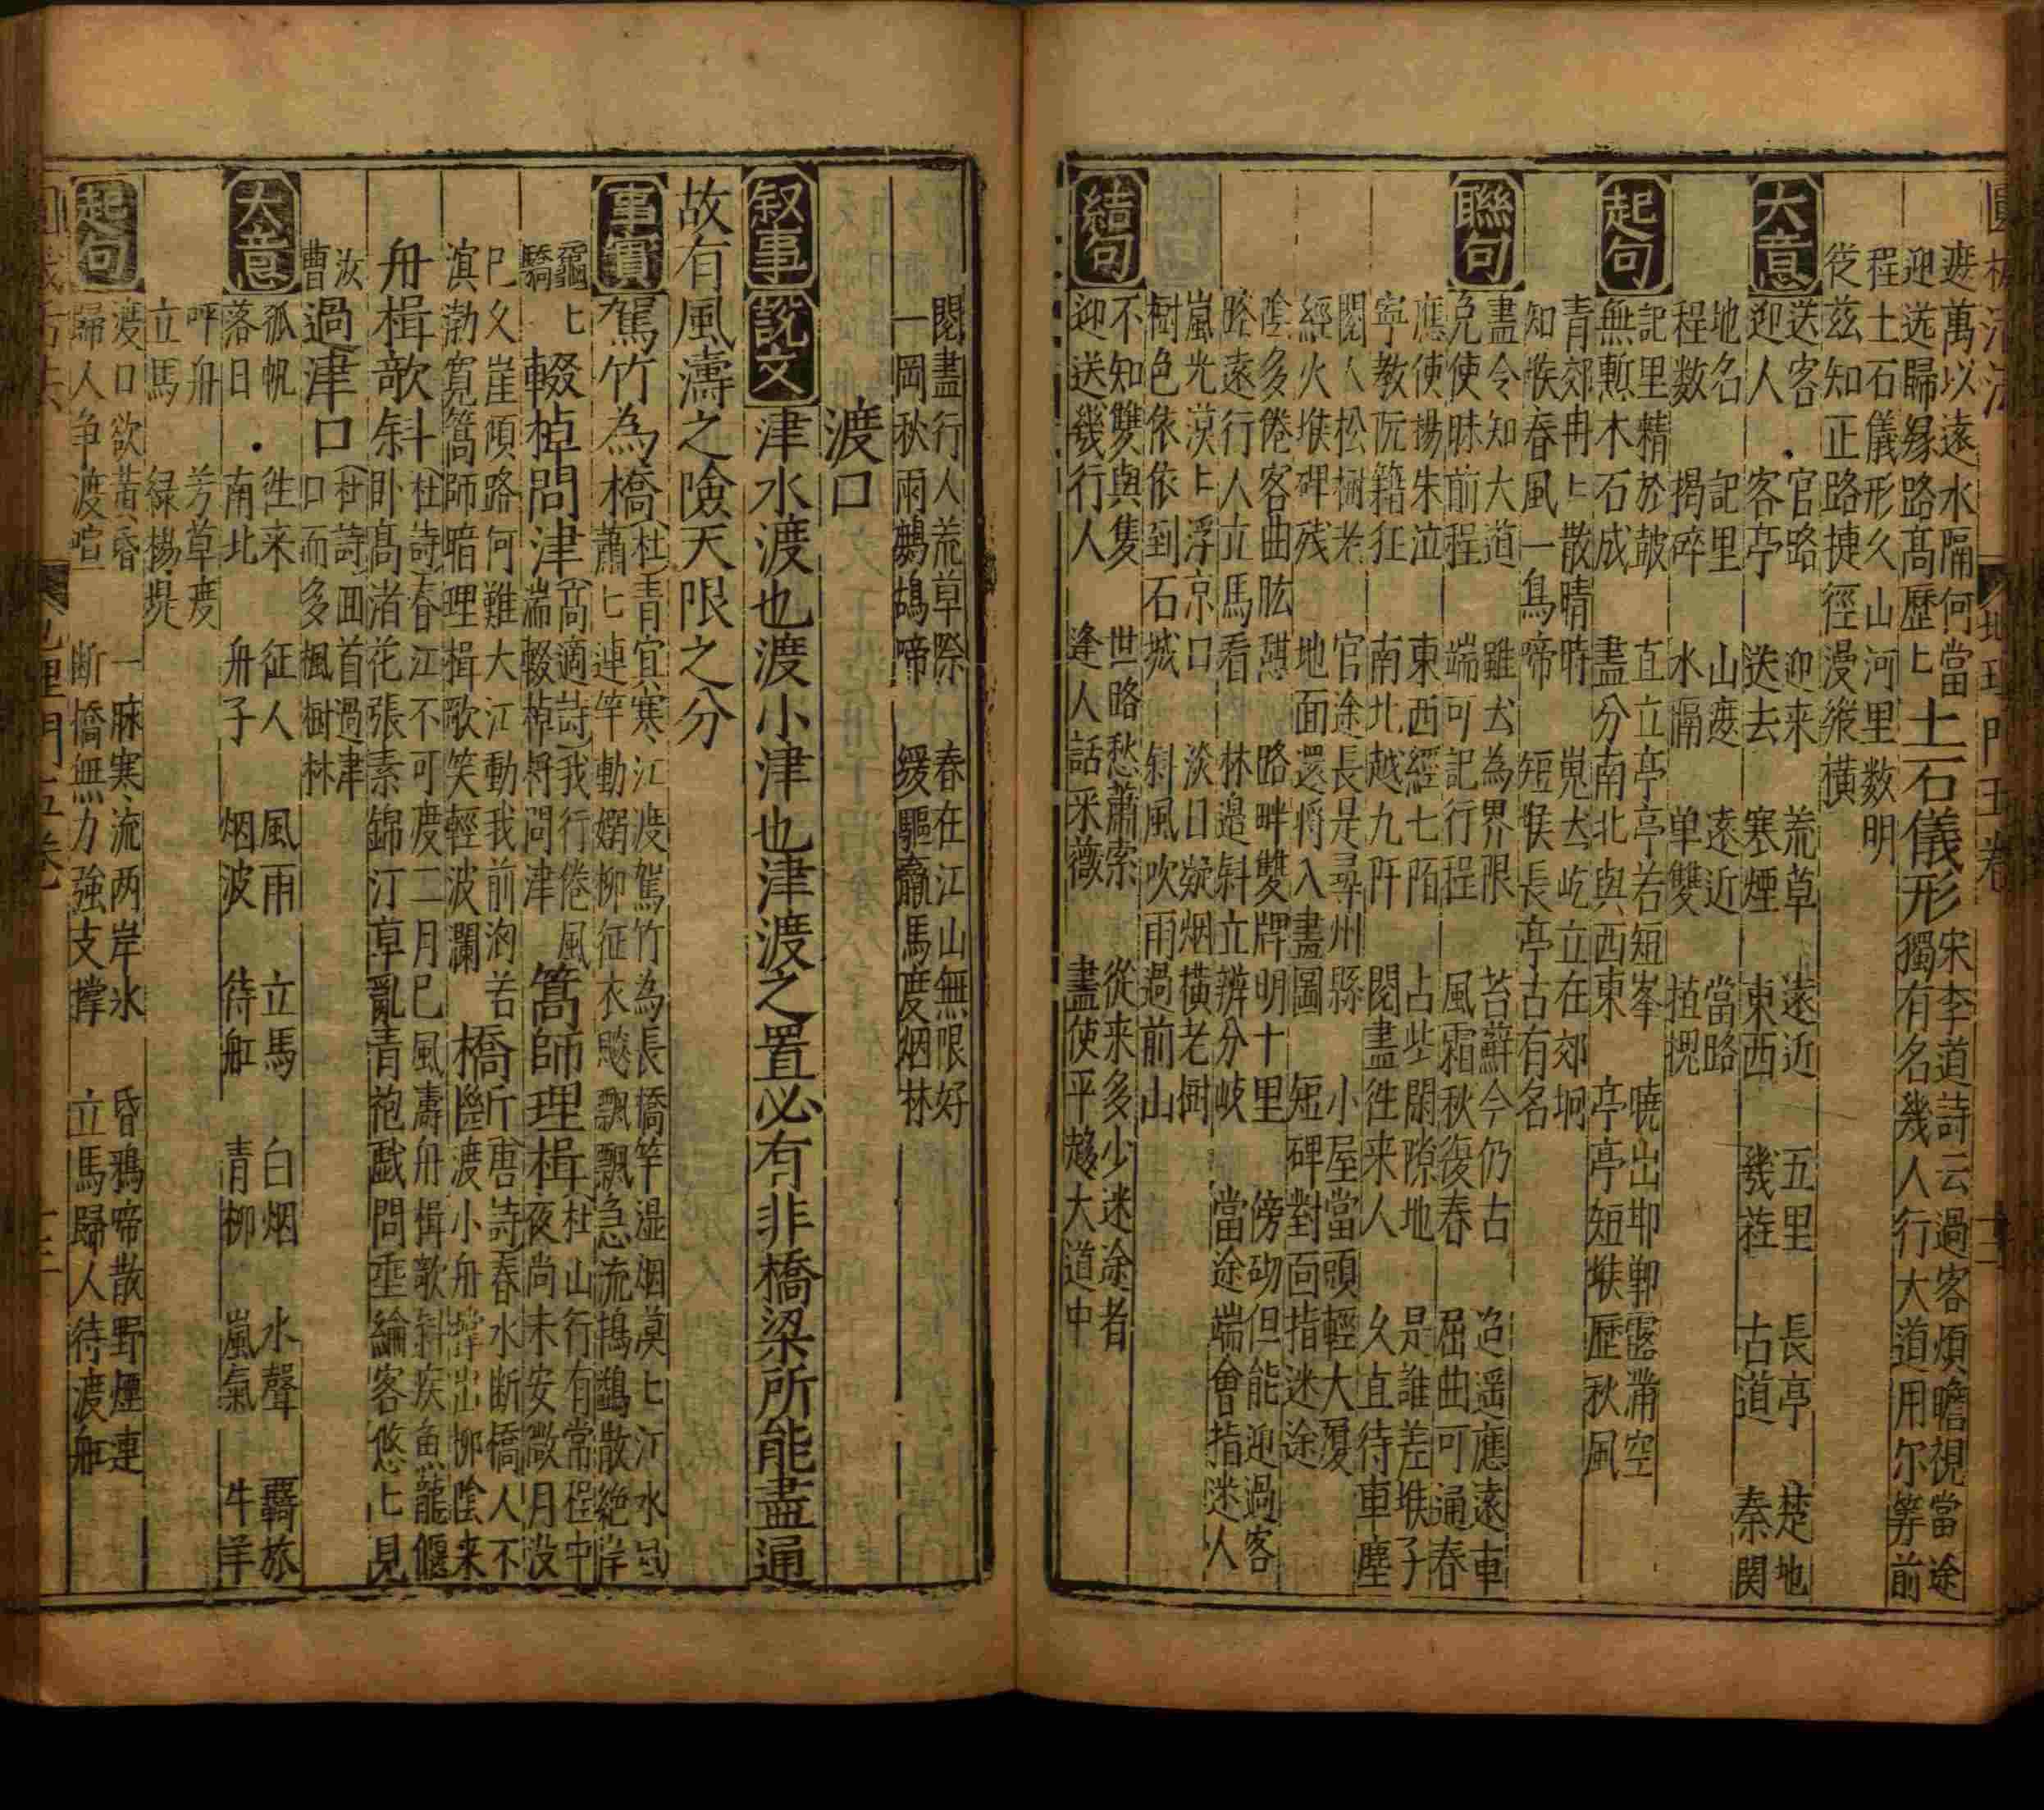 遞萬以遠水隔何當
迎送歸緣路髙歷𠤎土石儀形宋李道詩云過客煩瞻視當途
獨有名幾人行大道用尔等前
程土石儀形久山河里数明
從茲知正路捷徑漫縱横
大意
送客 官路 迎来 荒草 遠近 五里 長亭 楚地
迎人 客亭 送去 寒煙 東西 㡬莊 古道 秦関
地名 記里 山遞 遠近 當路
程数 揭碎 水隔 单雙 植摁
起句
記里精於皷 直立亭亭若短峯 曉出邯鄲露滿空
無慙木石成 盡分南北與西東 亭亭短堠歴秋風
青郊冉𠤎散晴時 嵬岦屹立在郊坰
知堠春風一鳥啼 短堠長亭古有名
聯句
盡令知大道 雖岦為界限 苔蘚今仍古 迢遥應遠車
免使昧前程 端可記行程 風霜秋復春 屈曲可通春
應使揚朱泣 東西經七陌 占些閑隙地 是誰差堠子
寕教阮籍狂 南北越九阡 閱盡徃来人 久直待車塵
閱人松樹老 官途長是尋州縣 小屋當頭輕大厦
經火堠碑残 地面還将入畫圖 短碑對面指迷途
陰多倦客曲肱 路畔雙牌明十里 傍砌但能迎過客
路遠行人立馬看 林邉斜立辨分岐 當途端會指迷人
嵐光漠𠤎浮京口 淡日凝烟横老樹
樹色依依到石城 斜風吹雨過前山
結句
不知雙與隻 世路愁蕭索 從来多少迷途者
迎送幾行人 逢人話采薇 盡使平趍大道中
閱盡行人荒草際 春在江山無限好
一岡秋雨鷓鴣啼 緩驅羸馬度烟林
渡口
叙事 説文 津水渡也渡小津也津渡之置必有非橋梁所能盡通
故有風濤之險天限之分
事實 駕竹為橋(杜)青宜寒江渡駕竹為長橋竿湿烟漠𠤎江水
蕭𠤎連竿動嫋柳征衣飈飄飄急流鴇鷁散絶岸
黿
驕𠤎輟棹問津(髙適詩)我行倦風
湍輟棹将問津篙師理楫(杜)山行有常程中
夜尚未安㣲月没
巳久崖傾路何難大江動我前洶若
溟渤寛篙師暗理楫歌笑輕波瀾橋斷唐詩)春水断橋人不
渡小舟撑出柳陰来
舟楫欹斜(杜詩)春江不可度二月巳風濤舟楫欹斜疾魚龍偃
卧髙渚花張素錦汀草亂青袍戯問垂綸客悠𠤎見
汝
曹過津口(杜詩)囬首過津
口而多楓樹林
大意
孤帆 徃来 征人 風雨 立馬 白烟 水聲 覊旅
落日 南北 舟子 烟波 待舡 青柳 嵐氣 牛羊
呼舟 芳草度
立馬 緑楊堤
起句
渡口欲黄昏 一脉寒流两岸氷 昏鴉啼散野煙連
歸人争渡喧 断橋無力強支撑 立馬歸人待渡舡